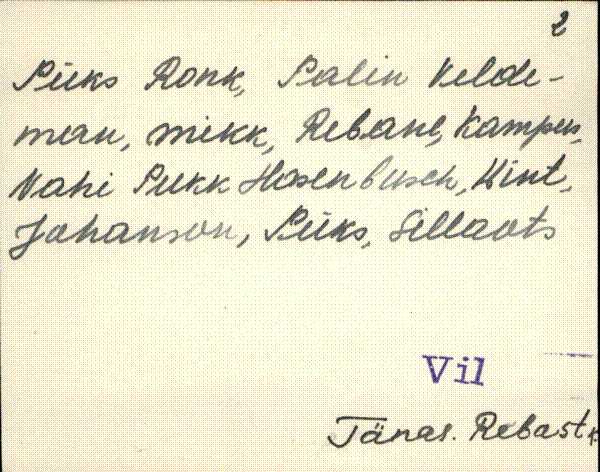 2
Püks Ronk, Palin Velde-
man, Mikk, Rebane, Kampus,
Vahi Pukk Hasenbusch, Hint,
Johanson, Püks, Sillaots
Vil
Tänas. Rebast k.